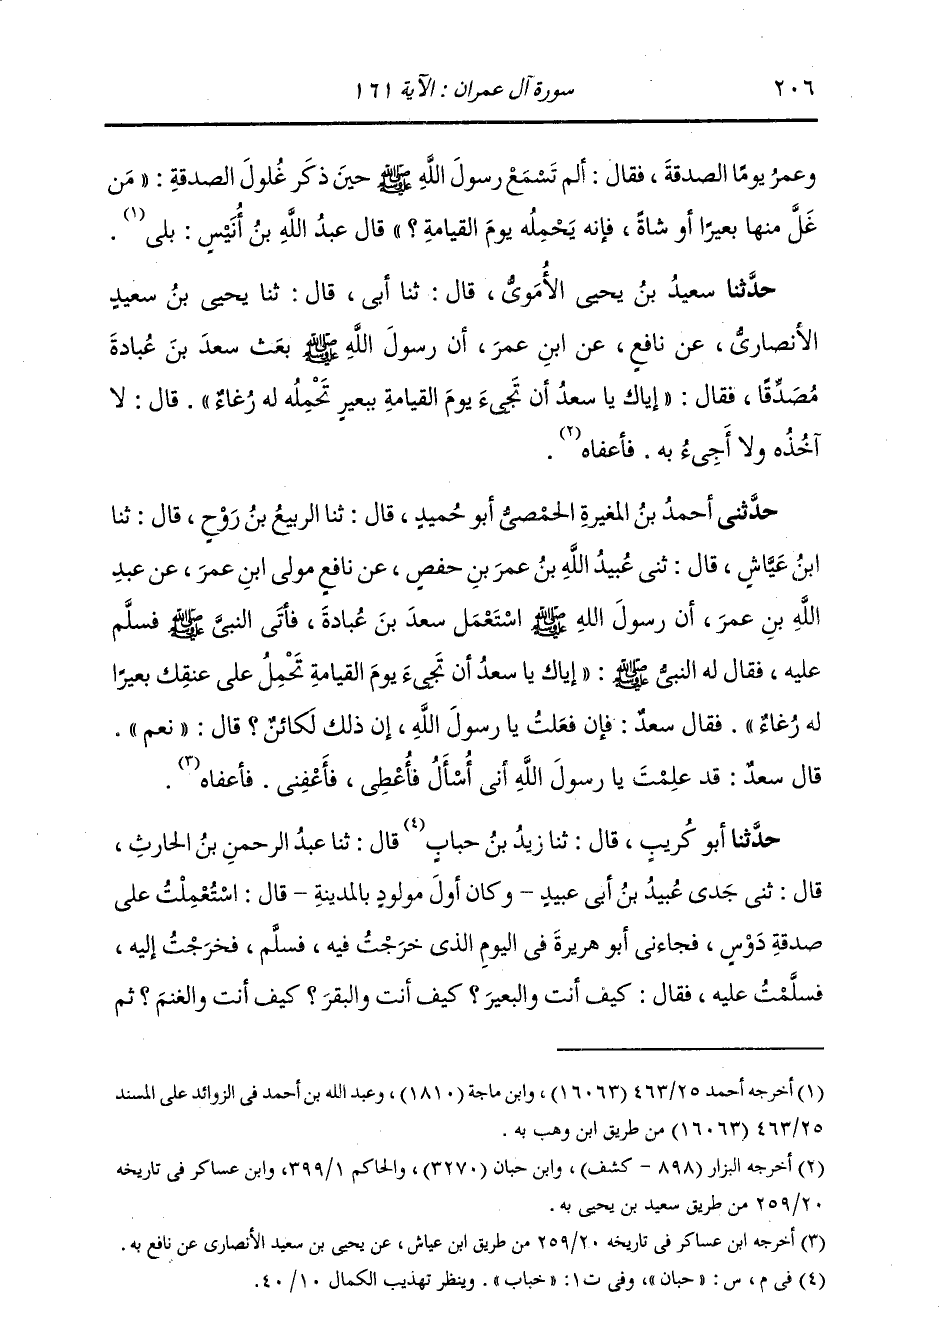 ٢٠٦ سورة آل عمران : الآية ١٦١
وعمرُ يومًا الصدقةَ ، فقال : ألم تَسْمَعْ رسولَ اللَّهِ ﷺ حينَ ذكَر غُلولَ الصدقةِ : « مَن
غَلَّ منها بعيرًا أو شاةً ، فإنه يَحْمِلُه يومَ القيامةِ ؟ » قال عبدُ اللَّهِ بنُ أُنَيْسٍ : بلى(١) .
حدَّثنا سعيدُ بنُ يحيى الأُمَوىُّ ، قال : ثنا أبى ، قال : ثنا يحيى بنُ سعيدٍ
الأنصارىُّ ، عن نافعٍ ، عن ابنِ عمرَ ، أن رسولَ اللَّهِ ﷺ بعَث سعدَ بنَ عُبادةَ
مُصَدِّقًا ، فقال : « إياك يا سعدُ أن تَجِىءَ يومَ القيامةِ ببعيرٍ تَحْمِلُه له رُغاءٌ » . قال : لا
آخُذُه ولا أَجِىءُ به . فأعفاه(٢) .
حدَّثنى أحمدُ بنُ المغيرةِ الحمْصىُّ أبو حُميدٍ ، قال : ثنا الربيعُ بنُ رَوْحٍ ، قال : ثنا
ابنُ عَيَّاشٍ ، قال : ثنى عُبيدُ اللَّهِ بنُ عمرَ بنِ حفصٍ ، عن نافعٍ مولى ابنِ عمرَ ، عن عبدِ
اللَّهِ بنِ عمرَ ، أن رسولَ اللهِ ﷺ اسْتَعْمَل سعدَ بنَ عُبادةَ ، فأتَى النبىَّ ﷺ فسلَّم
عليه ، فقال له النبىُّ ﷺ : « إياك يا سعدُ أن تَجِىءَ يومَ القيامةِ تَحْمِلُ على عنقِك بعيرًا
له رُغاءٌ » . فقال سعدٌ : فإن فعَلتُ يا رسولَ اللَّهِ ، إن ذلك لَكائنٌ ؟ قال : « نعم » .
قال سعدٌ : قد علِمْتَ يا رسولَ اللَّهِ أنى أُسْأَلُ فأُعْطِى ، فأَعْفِنى . فأعفاه(٣) .
حدَّثنا أبو كُريبٍ ، قال : ثنا زيدُ بنُ حبابٍ(٤) قال : ثنا عبدُ الرحمنِ بنُ الحارثِ ،
قال : ثنى جَدى عُبيدُ بنُ أبى عبيدٍ - وكان أولَ مولودٍ بالمدينةِ - قال : اسْتُعْمِلْتُ على
صدقةِ دَوْسٍ ، فجاءنى أبو هريرةَ فى اليومِ الذى خرَجْتُ فيه ، فسلَّم ، فخرَجْتُ إليه ،
فسلَّمْتُ عليه ، فقال : كيف أنت والبعيرَ ؟ كيف أنت والبقرَ ؟ كيف أنت والغنمَ ؟ ثم
(١) أخرجه أحمد ٤٦٣/٢٥ (١٦٠٦٣) ، وابن ماجة (١٨١٠) ، وعبد الله بن أحمد فى الزوائد على المسند
٤٦٣/٢٥ (١٦٠٦٣) من طريق ابن وهب به .
(٢) أخرجه البزار (٨٩٨ - كشف) ، وابن حبان (٣٢٧٠) ، والحاكم ٣٩٩/١، وابن عساكر فى تاريخه
٢٥٩/٢٠ من طريق سعيد بن يحيى به .
(٣) أخرجه ابن عساكر فى تاريخه ٢٥٩/٢٠ من طريق ابن عياش ، عن يحيى بن سعيد الأنصارى عن نافع به .
(٤) فى م ، س : « حبان »، وفى ت١: « خباب » . وينظر تهذيب الكمال ٤٠/١٠.